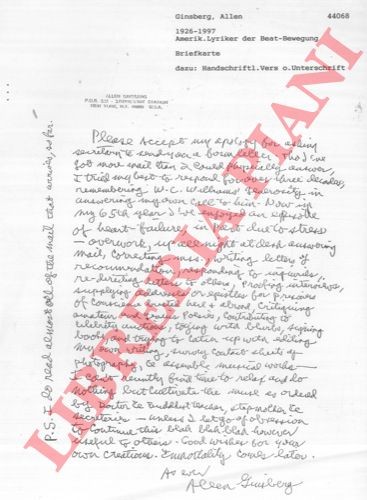 Ginsberg, Allen 44068
1926-1997
Amerik.Lyriker der Beat-Bewegung
Briefkarte
dazu: Handschriftl.Vers o.Unterschrift
ALLEN GINSBERG
P.O.B. 582 STUYVESANT STATION
NEW YORK, N.Y. 10009 U.S.A.
Please accept my apology for asking
secretary to send you a form letter. Tho' I've
got more mail than I could physically answer,
I tried my best to respond for over three decades,
remembering W.C. Williams' generosity in
answering my own call to him. Now in
my 65th year I've enjoyed an episode
of heart-failure, in part due to stress
– overwork, up all night at desk answering
mail, correcting proofs, writing letters of
recommendation, responding to inquiries,
re-directing letters to others, proofing interviews,
supplying or epistles for prisoners
of conscience and abroad, critiquing
amateur & Poesis, contributing to
celebrity auctions, toying with blurbs, signing
books and trying to later up with editing
my own writing, survey contact sheets of
photographs, & assemble musical works –
I can't recently find time to relax and do
nothing but cultivate the muse as ordered
by doctor & Buddhist teacher, stepmother, &
secretaries – unless I let go of obsession
to continue this blah blah blah however
useful to others. Good wishes for your
own creations. Immortality comes later.
As ever
Allen Ginsberg
P.S. I do read almost all of the mail that arrives, so far.
LIBRERIA PIANI